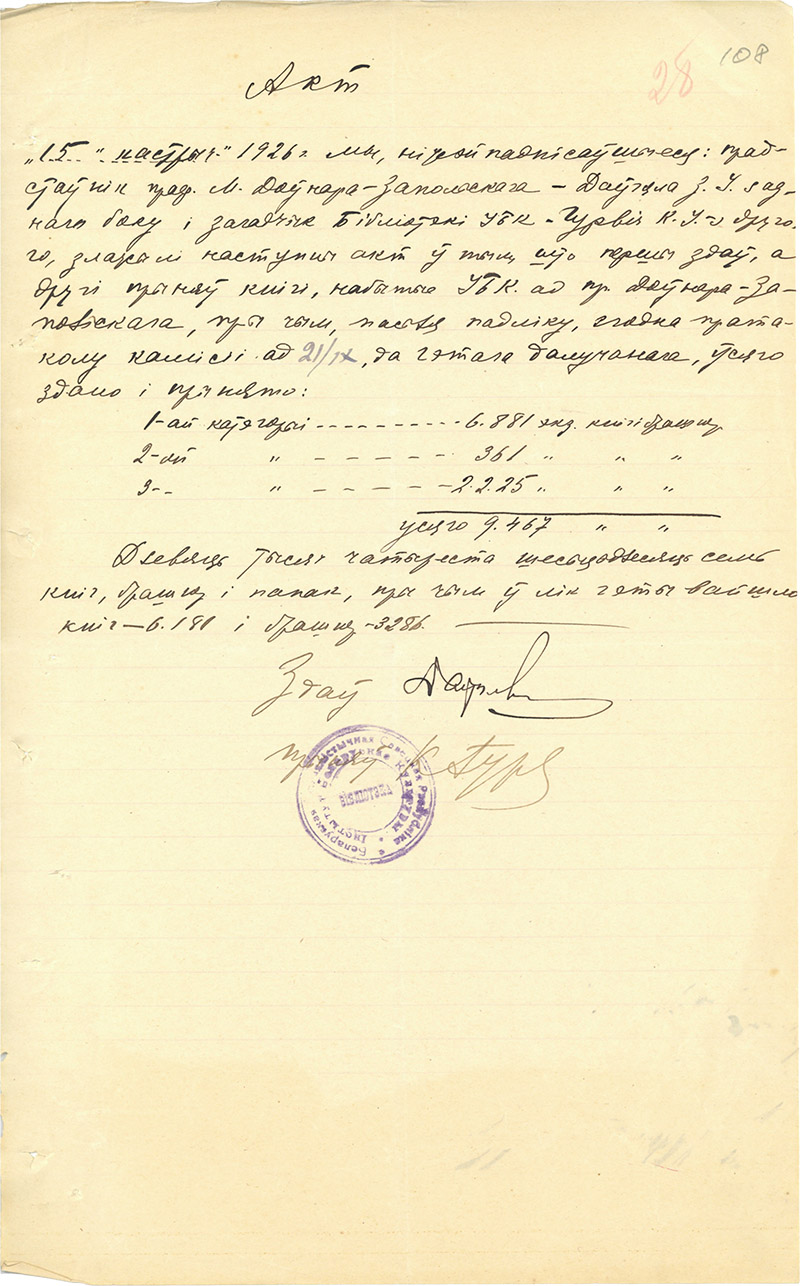 108
28
Акт
„15“ кастрыч“ 1926 г. мы, ніжэй падпісаўшыеся: прад-
стаўнік праф. М. Доўнара-Запольскага – Даўгяла З. І. з ад-
наго боку і загадчік Бібліотэкі ІБК – Гурвіч К. І. з друго-
го, злажылі наступны акт ў тым што першы здаў, а
другі прыняў кнігі, набытые ІБК. ад пр. Доўнара-За-
польскага, пры чым, пасьля падліку, згодна прата-
колу камісіі ад 21/IX, да гэтага далучанага, ўсяго
здано і прінято:
1-ай катэгорыі - - - - - - - - - 6.881 экз. кніг і брашур
2-ой „ – – – – – – 361 „ „ „
3-- „ – – – – – 2.2.25 „ „ „
усяго 9.467 „ „
Дзевяць тысяч чатыреста шесьцьдзесяць семь
кніг, брашур і папак, пры чым ў лік гэты вайшло
кніг – 6.181 і брашур – 3286.
Здаў
прыняў К Гурв
Беларуская Савецкая Рэспубліка • Інстытут Беларускае Культуры •